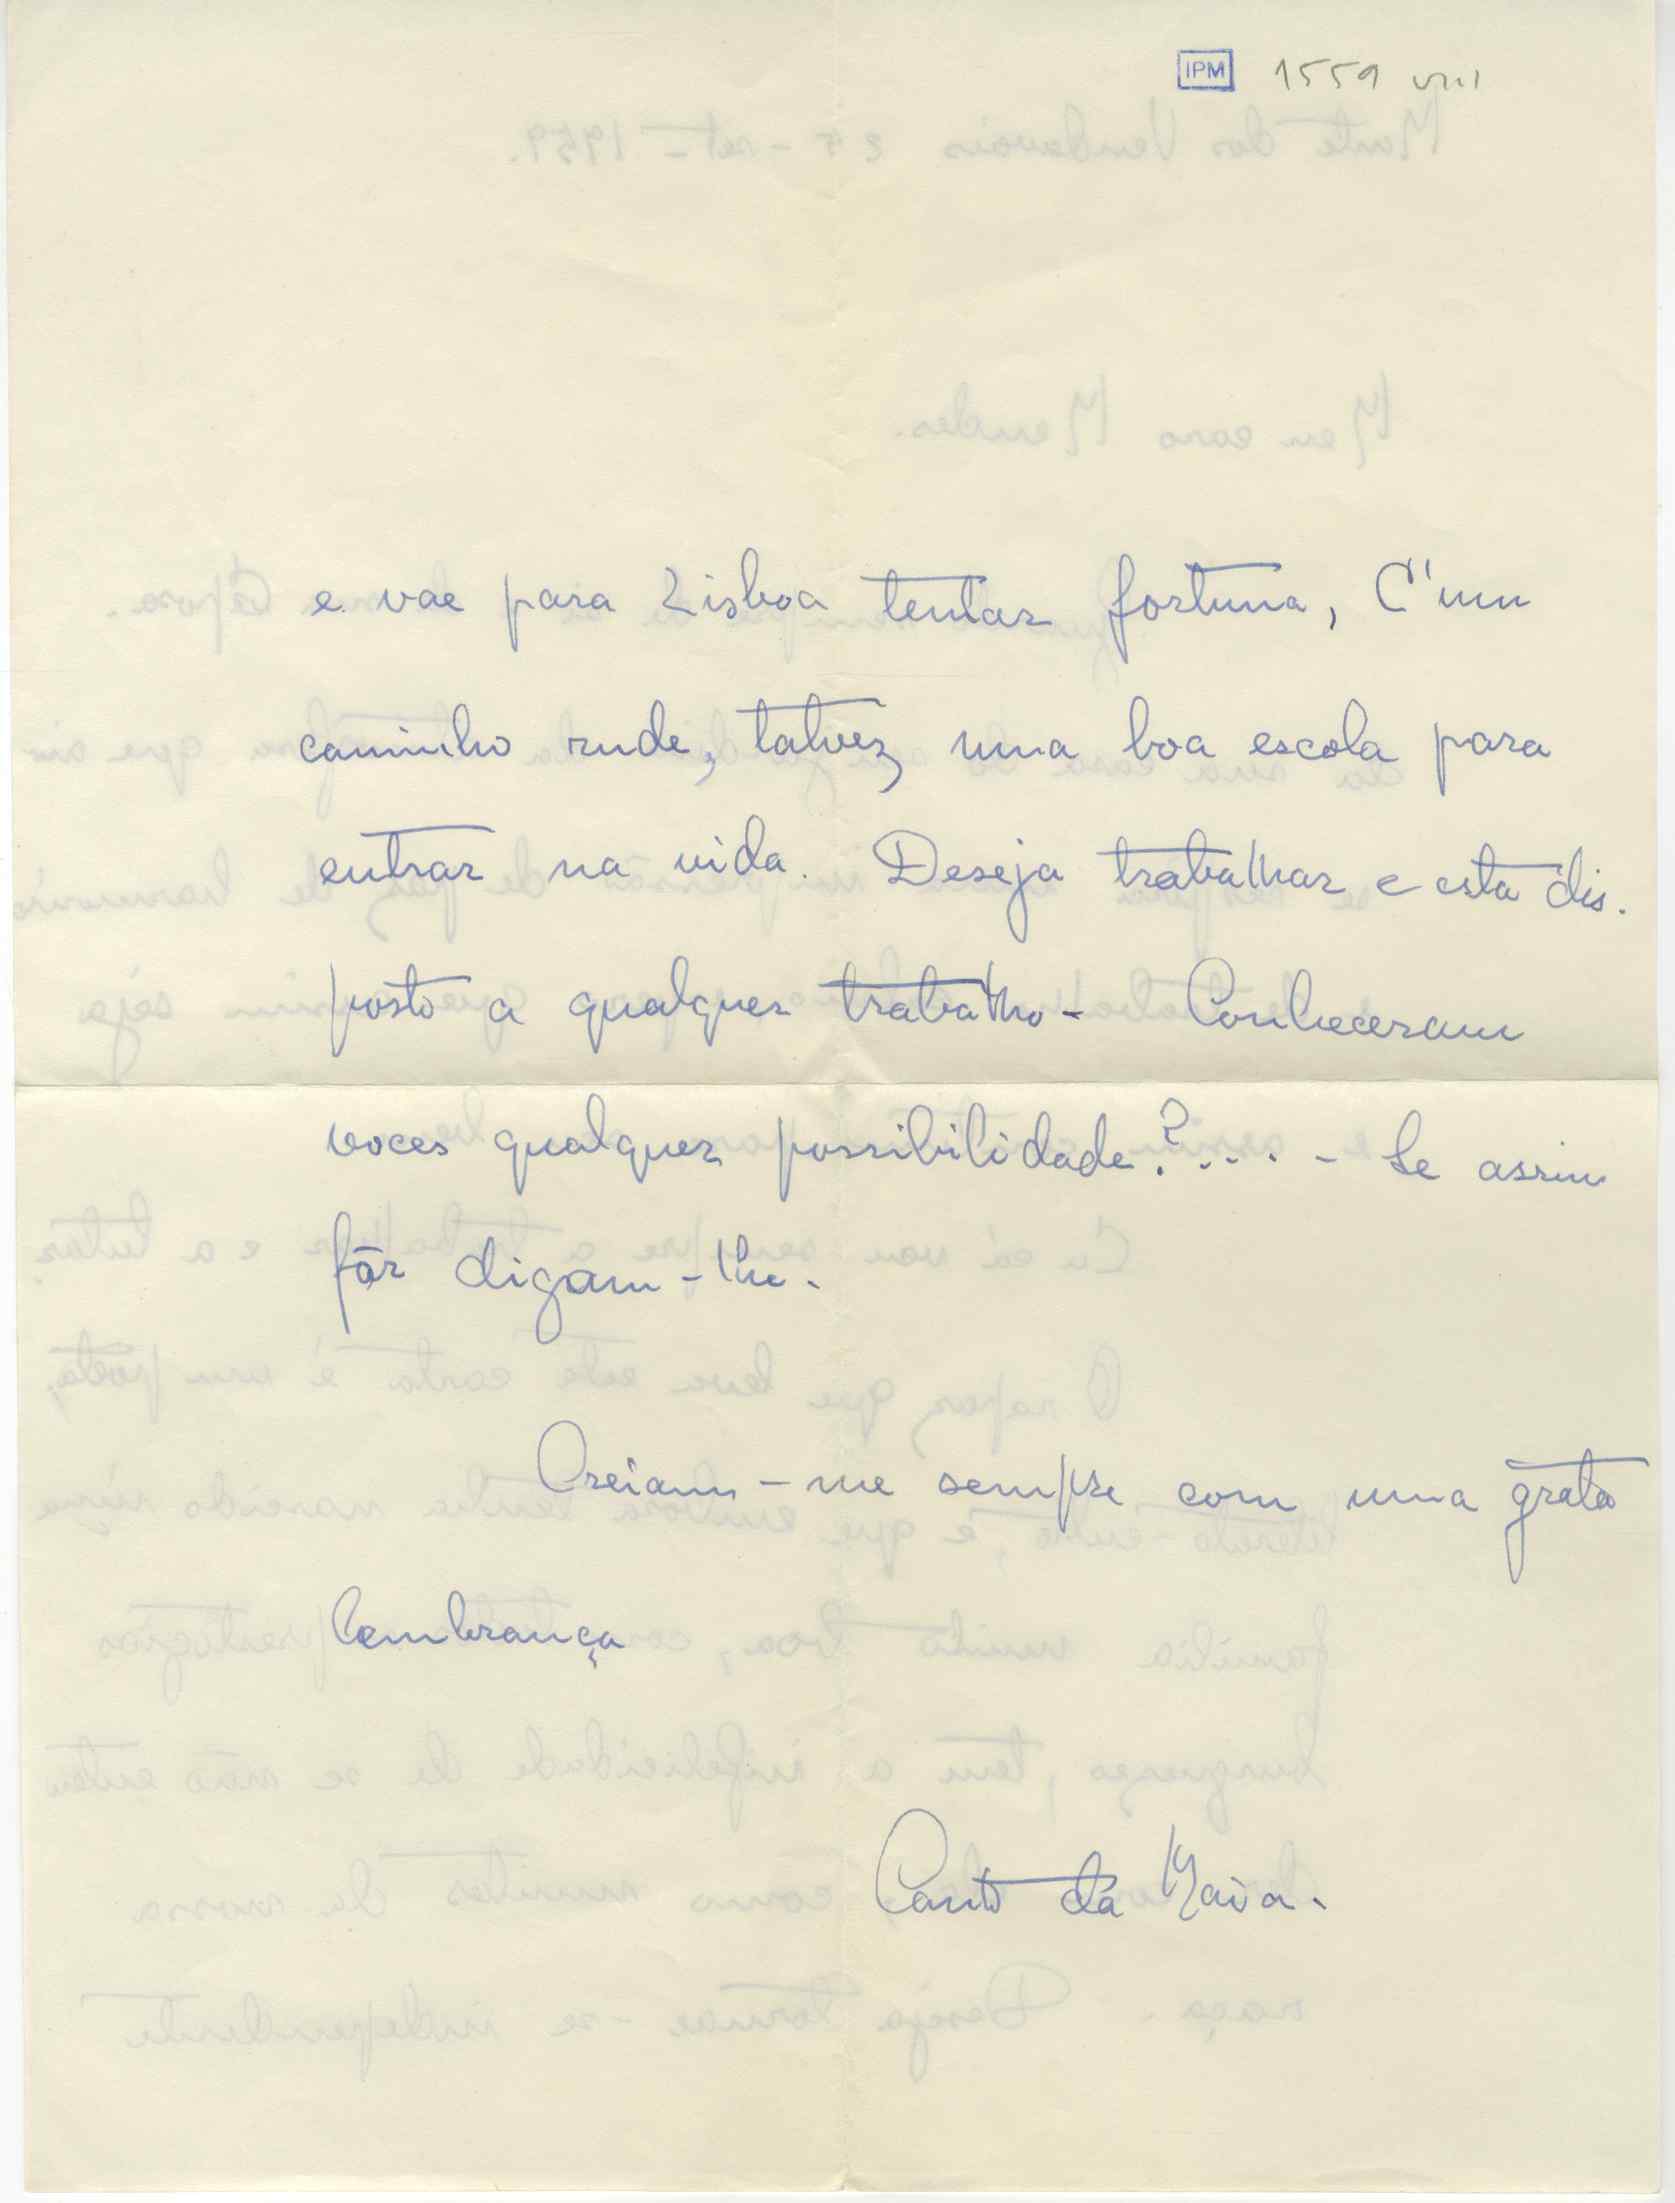 IPM 1559 VIII
e vae para Lisboa tentar fortuna, É um
caminho rude, talvez, uma boa escola para
entrar na vida. Deseja trabalhar e esta dis.
posto a qualquer trabalho - Conheceram
voces qualquer possibilidade?.... - Se assim
fôr digam-lhe.
Creiam-me sempre com uma grata
lembrança
Canto da Maia.